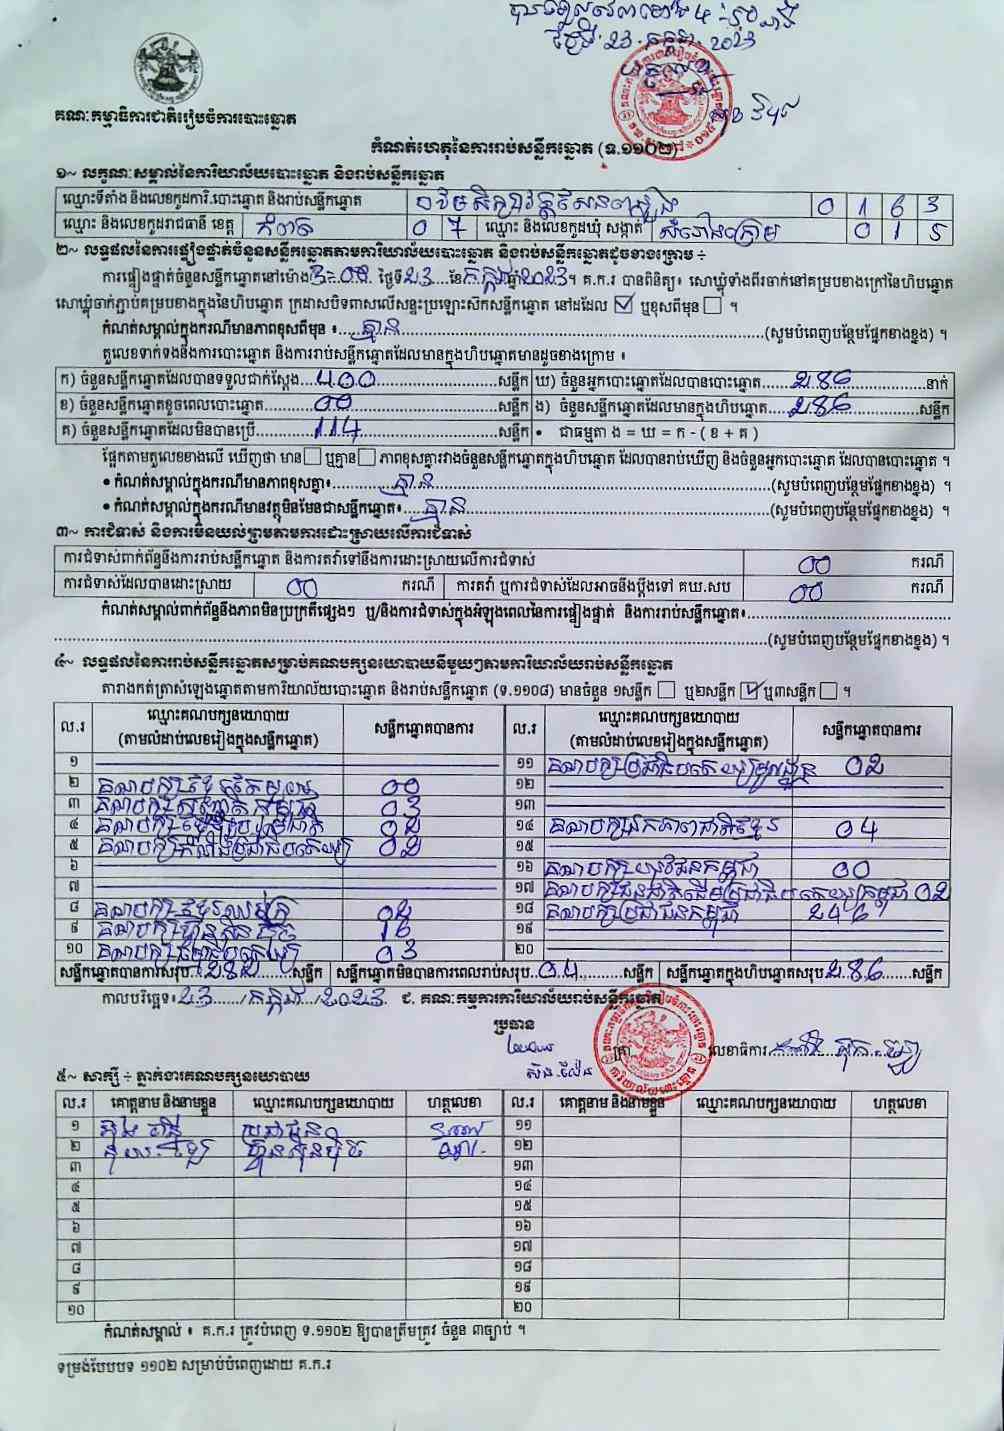 ថ្ងៃទី 23 កក្កដា 2023
គណៈកម្មាធិការជាតិរៀបចំការបោះឆ្នោត
កំណត់ហេតុនៃការរាប់សន្លឹកឆ្នោត (ទ.១១០២)
១~ លក្ខណៈសម្គាល់នៃការិយាល័យបោះឆ្នោត និងរាប់សន្លឹកឆ្នោត
ឈ្មោះទីតាំង និងលេខកូដការិ.បោះឆ្នោត និងរាប់សន្លឹកឆ្នោត 0 1 6 3
ឈ្មោះ និងលេខកូដរាជធានី ខេត្ត កំពត 0 7 ឈ្មោះ និងលេខកូដឃុំ សង្កាត់ សំរោងក្រោម 0 1 5
២~ លទ្ធផលនៃការផ្ទៀងផ្ទាត់ចំនួនសន្លឹកឆ្នោតតាមការិយាល័យបោះឆ្នោត និងរាប់សន្លឹកឆ្នោតដូចខាងក្រោម ÷
ការផ្ទៀងផ្ទាត់ចំនួនសន្លឹកឆ្នោតនៅម៉ោង 3:00 ថ្ងៃទី 23 ខែ កក្កដា ឆ្នាំ 2023។ គ.ក.រ បានពិនិត្យ៖ សោឃ្លុំទាំងពីរចាក់នៅគម្របខាងក្រៅនៃហិបឆ្នោត
សោឃ្លុំចាក់ភ្ជាប់គម្របខាងក្នុងនៃហិបឆ្នោត ក្រដាសបិទពាសលើសន្ទះប្រឡោះសឹកសន្លឹកឆ្នោត នៅដដែល ☑ ឬខុសពីមុន ☐ ។
កំណត់សម្គាល់ក្នុងករណីមានភាពខុសពីមុន ៖ គ្មាន (សូមបំពេញបន្ថែមផ្នែកខាងខ្នង) ។
តួលេខទាក់ទងនឹងការបោះឆ្នោត និងការរាប់សន្លឹកឆ្នោតដែលមានក្នុងហិបឆ្នោតមានដូចខាងក្រោម ៖
ក) ចំនួនសន្លឹកឆ្នោតដែលបានទទួលជាក់ស្តែង 400 សន្លឹក ឃ) ចំនួនអ្នកបោះឆ្នោតដែលបានបោះឆ្នោត 286 នាក់
ខ) ចំនួនសន្លឹកឆ្នោតខូចពេលបោះឆ្នោត 00 សន្លឹក ង) ចំនួនសន្លឹកឆ្នោតដែលមានក្នុងហិបឆ្នោត 286 សន្លឹក
គ) ចំនួនសន្លឹកឆ្នោតដែលមិនបានប្រើ 114 សន្លឹក • ជាធម្មតា ង = ឃ = ក - ( ខ + គ )
ផ្អែកតាមតួលេខខាងលើ ឃើញថា មាន ☐ ឬគ្មាន ☐ ភាពខុសគ្នារវាងចំនួនសន្លឹកឆ្នោតក្នុងហិបឆ្នោត ដែលបានរាប់ឃើញ និងចំនួនអ្នកបោះឆ្នោត ដែលបានបោះឆ្នោត ។
• កំណត់សម្គាល់ក្នុងករណីមានភាពខុសគ្នា៖ គ្មាន (សូមបំពេញបន្ថែមផ្នែកខាងខ្នង) ។
• កំណត់សម្គាល់ក្នុងករណីមានវត្ថុមិនមែនជាសន្លឹកឆ្នោត៖ គ្មាន (សូមបំពេញបន្ថែមផ្នែកខាងខ្នង) ។
៣~ ការជំទាស់ និងការមិនយល់ព្រមតាមការដោះស្រាយលើការជំទាស់
ការជំទាស់ពាក់ព័ន្ធនឹងការរាប់សន្លឹកឆ្នោត និងការតវ៉ាទៅនឹងការដោះស្រាយលើការជំទាស់ 00 ករណី
ការជំទាស់ដែលបានដោះស្រាយ 00 ករណី ការតវ៉ា ឬការជំទាស់ដែលអាចនឹងប្តឹងទៅ គឃ.សប 00 ករណី
កំណត់សម្គាល់ពាក់ព័ន្ធនឹងភាពមិនប្រក្រតីផ្សេងៗ ឬ/និងការជំទាស់ក្នុងអំឡុងពេលនៃការផ្ទៀងផ្ទាត់ និងការរាប់សន្លឹកឆ្នោត៖
(សូមបំពេញបន្ថែមផ្នែកខាងខ្នង) ។
៤~ លទ្ធផលនៃការរាប់សន្លឹកឆ្នោតសម្រាប់គណបក្សនយោបាយនីមួយៗតាមការិយាល័យរាប់សន្លឹកឆ្នោត
តារាងកត់ត្រាសំឡេងឆ្នោតតាមការិយាល័យបោះឆ្នោត និងរាប់សន្លឹកឆ្នោត (ទ.១១០៨) មានចំនួន ១សន្លឹក ☐ ឬ២សន្លឹក ☑ ឬ៣សន្លឹក ☐ ។
ល.រ ឈ្មោះគណបក្សនយោបាយ (តាមលំដាប់លេខរៀងក្នុងសន្លឹកឆ្នោត) សន្លឹកឆ្នោតបានការ ល.រ ឈ្មោះគណបក្សនយោបាយ (តាមលំដាប់លេខរៀងក្នុងសន្លឹកឆ្នោត) សន្លឹកឆ្នោតបានការ
១ ១១ គណបក្សប្រជាធិបតេយ្យមូលដ្ឋាន 02
២ គណបក្ស 00 ១២
៣ គណបក្ស 03 ១៣
៤ គណបក្ស 02 ១៤ គណបក្សឯកភាពជាតិខ្មែរ 04
៥ គណបក្សកម្លាំងប្រជាធិបតេយ្យ 02 ១៥
៦ ១៦ គណបក្សយុវជនកម្ពុជា 00
៧ ១៧ គណបក្សជនជាតិដើមប្រជាធិបតេយ្យកម្ពុជា 02
៨ គណបក្ស ១៨ គណបក្សប្រជាជនកម្ពុជា 246
៩ គណបក្សហ៊្វុនស៊ិនប៉ិច 16 ១៩
១០ គណបក្ស 03 ២០
សន្លឹកឆ្នោតបានការសរុប 282 សន្លឹក សន្លឹកឆ្នោតមិនបានការពេលរាប់សរុប 04 សន្លឹក សន្លឹកឆ្នោតក្នុងហិបឆ្នោតសរុប 286 សន្លឹក
កាលបរិច្ឆេទ៖ 23 / កក្កដា / 2023 ជ. គណៈកម្មការការិយាល័យរាប់សន្លឹកឆ្នោត
ប្រធាន
ត្រា លេខាធិការ
៥~ សាក្សី ÷ ភ្នាក់ងារគណបក្សនយោបាយ
ល.រ គោត្តនាម និងនាមខ្លួន ឈ្មោះគណបក្សនយោបាយ ហត្ថលេខា ល.រ គោត្តនាម និងនាមខ្លួន ឈ្មោះគណបក្សនយោបាយ ហត្ថលេខា
១ ប្រជាជន ១១
២ ហ៊្វុនស៊ិនប៉ិច ១២
៣ ១៣
៤ ១៤
៥ ១៥
៦ ១៦
៧ ១៧
៨ ១៨
៩ ១៩
១០ ២០
កំណត់សម្គាល់ ៖ គ.ក.រ ត្រូវបំពេញ ទ.១១០២ ឱ្យបានត្រឹមត្រូវ ចំនួន ៣ច្បាប់ ។
ទម្រង់បែបបទ ១១០២ សម្រាប់បំពេញដោយ គ.ក.រ